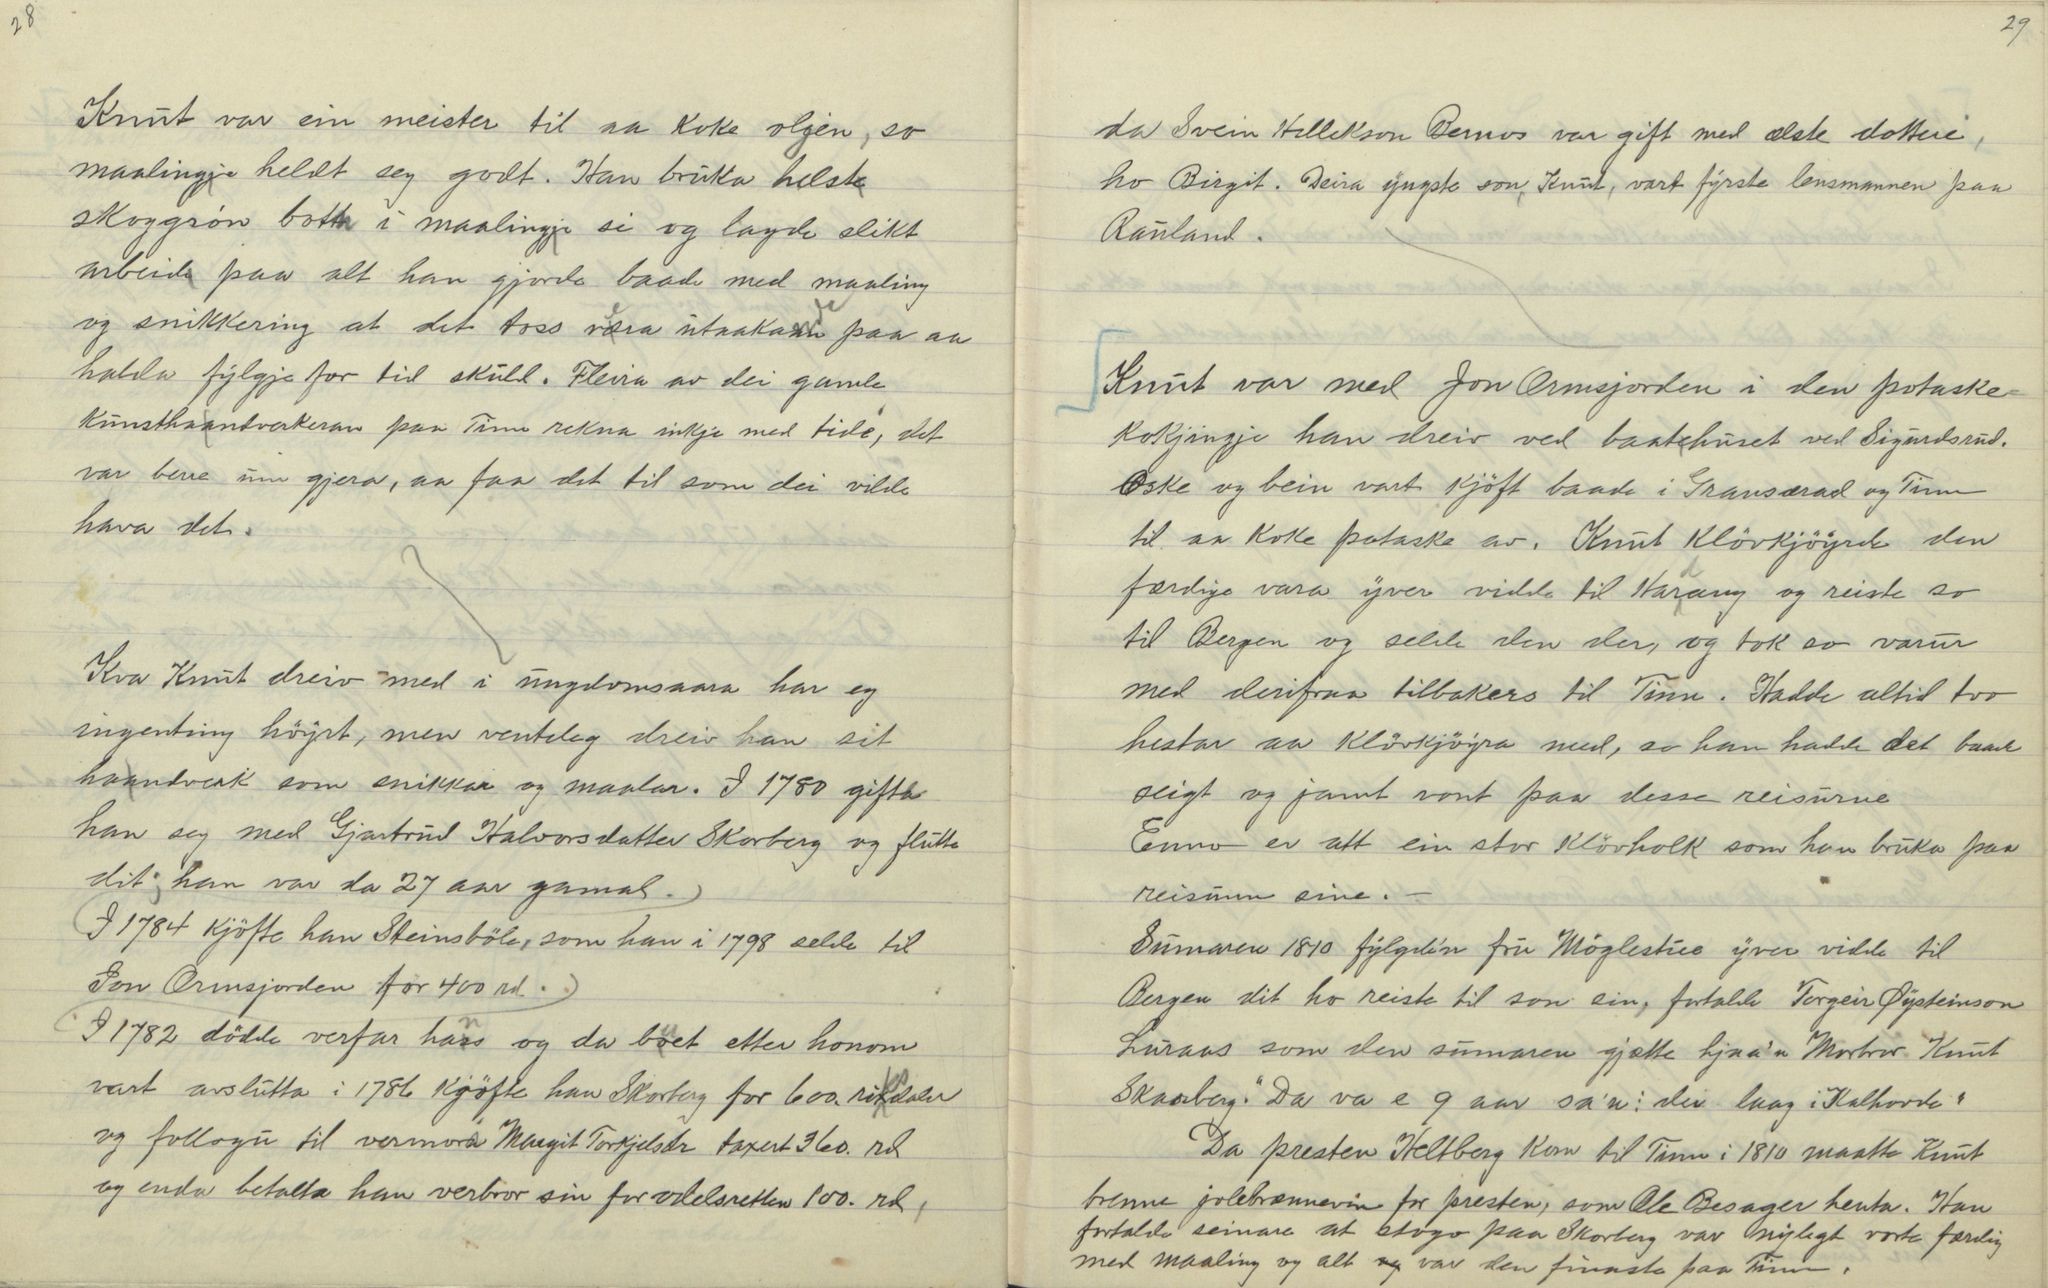 28
Knut var ein meister til aa koke oljen, so
maalingje heldt seg godt. Han bruka helste
skoggrön botta i maalingje si og lagde slikt
arbeide paa alt han gjorde baade med maaling
og snikkering at det toss væra utaakanje paa aa
halda fylgje for tid skuld. Fleira av dei gamle
kunsthaandverkeran paa Tinn rekna inkje med tide, det
var berre um gjera, aa faa det til som dei vilde
hava det.
Kva Knut dreiv med i ungdomsaara har eg
ingenting höyrt, men venteleg dreiv han sit
haandverk som snikkar og maalar. I 1780 gifta
han seg med Gjartrud Halvorsdatter Skorberg og flutte
dit; han var da 27 aar gamal.)
(I 1784 kjöfte han Steinsböle, som han i 1798 selde til
Jon Ormsjorden for 400 rd.)
I 1782 dödde verfar hans og da buet etter honom
vart avslutta i 1786 kjöfte han Skorberg for 600. riksdaler
og follogu til vermora Margit Torkjelsdr taxert 360. rd
og enda betalta han verbror sin for odelsretten 100. rd,
29
da Svein Hellekson Bernos var gift med elste dottere,
ho Birgit. Deira yngste son, Knut, vart fyrste lensmannen paa
Rauland.
Knut var med Jon Ormsjorden i den potaske-
kokjingje han dreiv ved baatehuset ved Sigurdsrud.
Oske og bein vart kjöft baade i Gransærad og Tinn
til aa koke potaske av. Knut klövkjöyrde den
færdige vara yver vidde til Harang og reiste so
til Bergen og selde den der, og tok so varur
med derifraa tilbakers til Tinn. Hadde altid tvo
hestar aa klövkjöyra med, so han hadde det baade
seigt og jamt vont paa desse reisurne
Enno er att ein stor klövholk som han bruka paa
reisunn sine. —
Sumaren 1810 fylgde'n fru Möglestue yver vidde til
Bergen dit ho reiste til son sin, fortalde Torgeir Øysteinson
Luraas som den sumaren gjætte hjaa'n Morbror Knut
Skaarberg. "Da va e 9 aar sa'n: dei laag i Kalhovde"
Da presten Heltberg kom til Tinn i 1810 maatte Knut
brenne jolebrennevin for presten, som Ole Besager henta. Han
fortalde seinare at stogo paa Skorberg var nylegt vorte færdig
med maaling og alt og var den finaste paa Tinn.